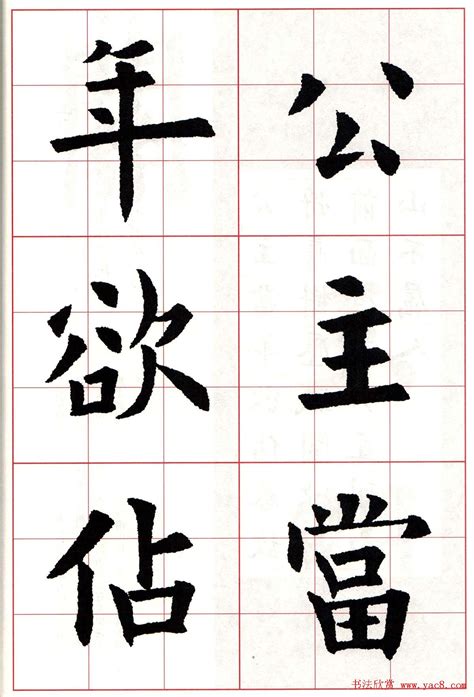 公主當
年欲佔
书法欣赏 www.yac8.com